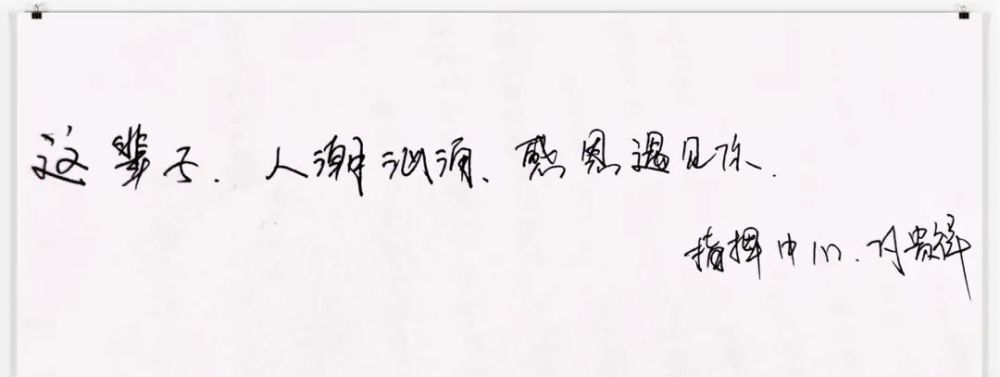 这辈子. 人潮汹涌、感恩遇见你.
指挥中心.